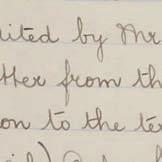 ited by Mr
tter from th
on to the te